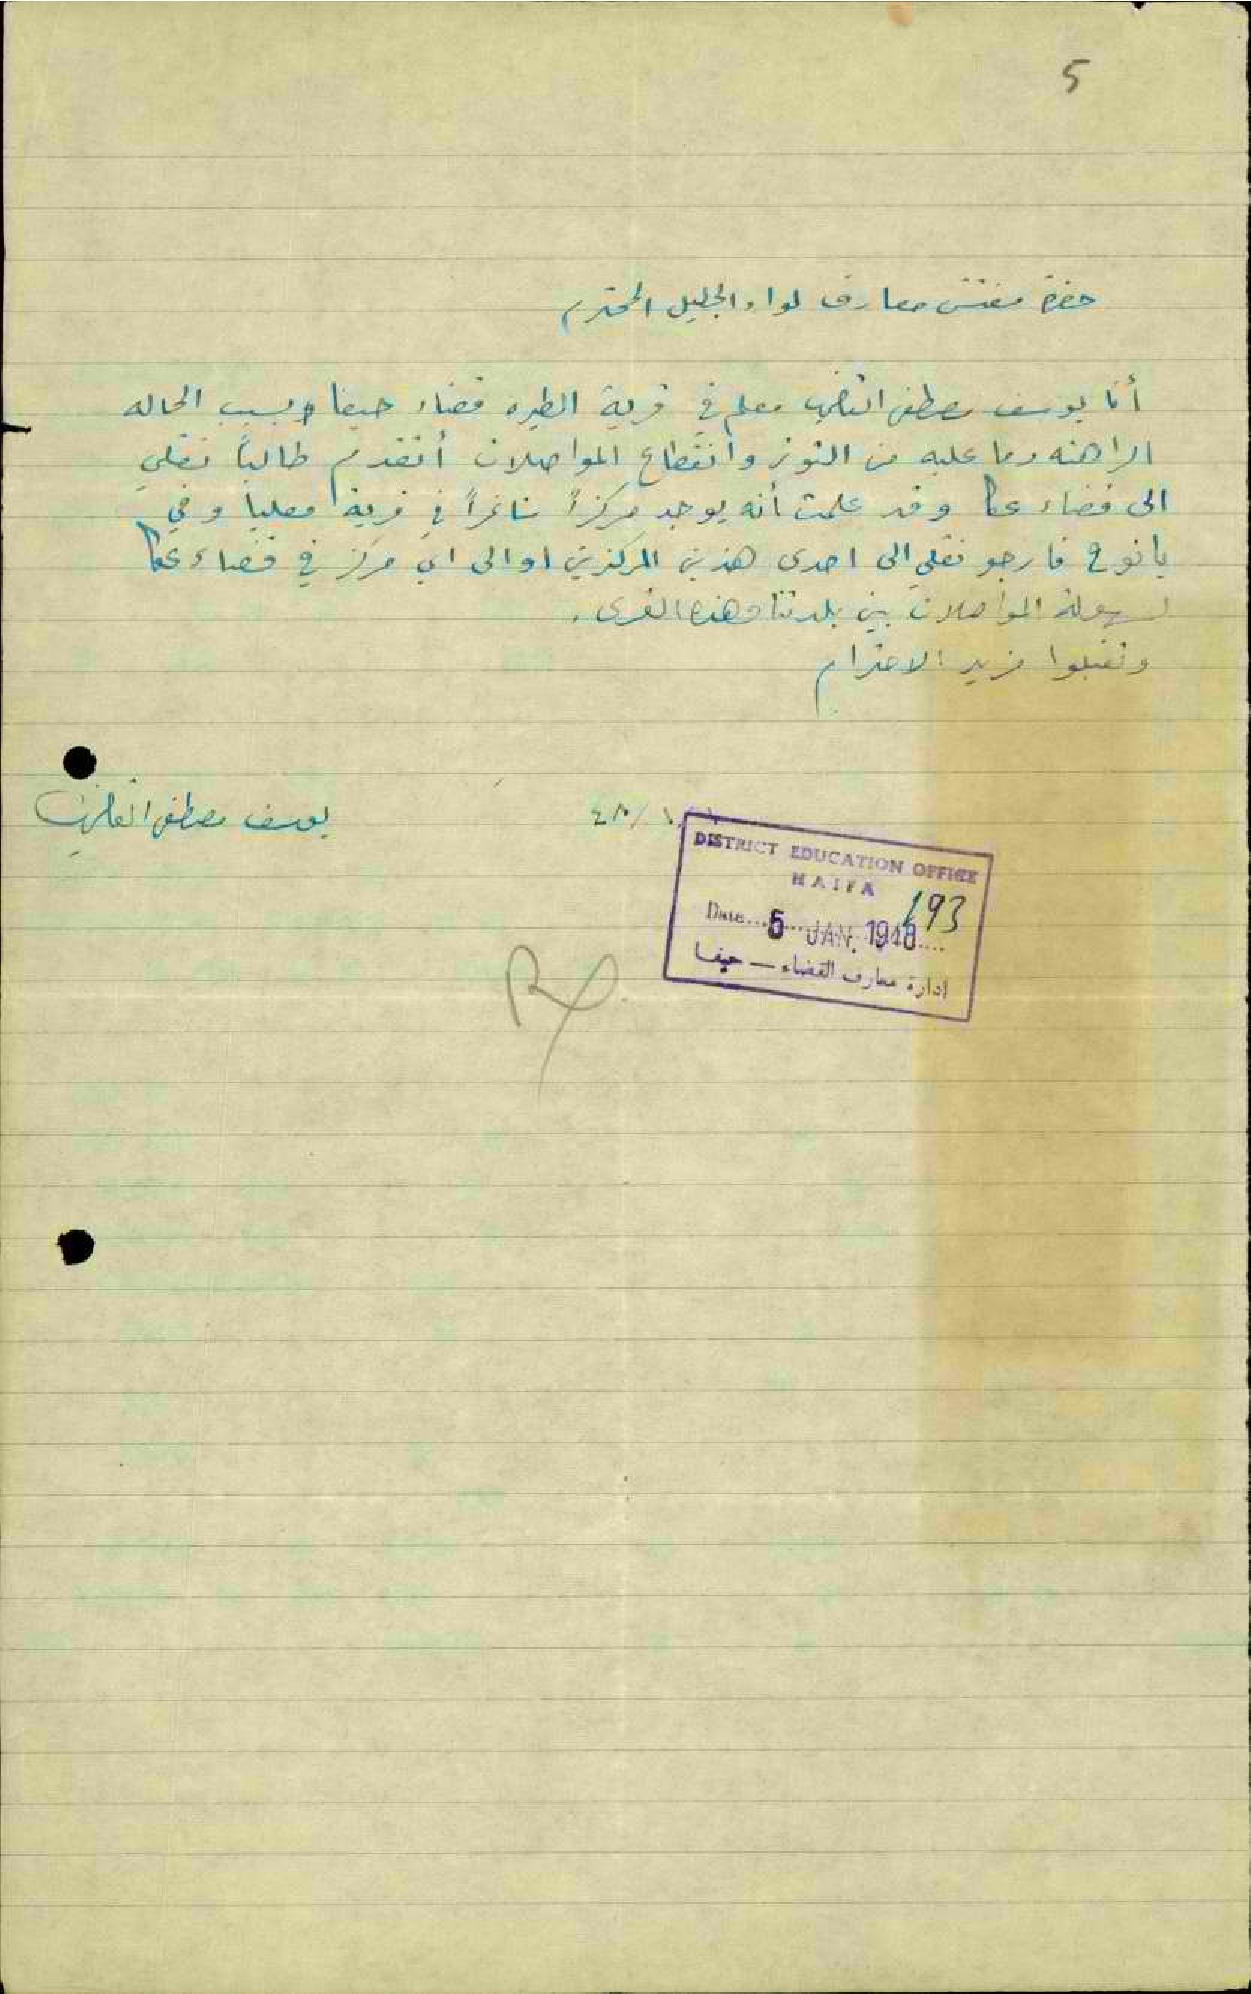 5
حضرة مفتش معارف لواء الجليل المحترم
أنا يوسف مصطفى القاضي معلم في قرية الطيره قضاء حيفا وبسبب الحاله
الراهنه وما عليه من التوتر وانقطاع المواصلات أتقدم طالباً نقلي
الى قضاء عكا وقد علمت أنه يوجد مركزاً شاغراً في قرية معليا وفي
يانوح فارجو نقلي الى احدى هذين المركزين او الى اي مركز في قضاء عكا
لسهولة المواصلات بين بلدتنا وهذه القرى.
وتقبلوا مزيد الاحترام
يوسف مصطفى القاضي
٤٨/١/
DISTRICT EDUCATION OFFICE
HAIFA
193
Date... 5 JAN. 1948....
ادارة معارف القضاء — حيفا